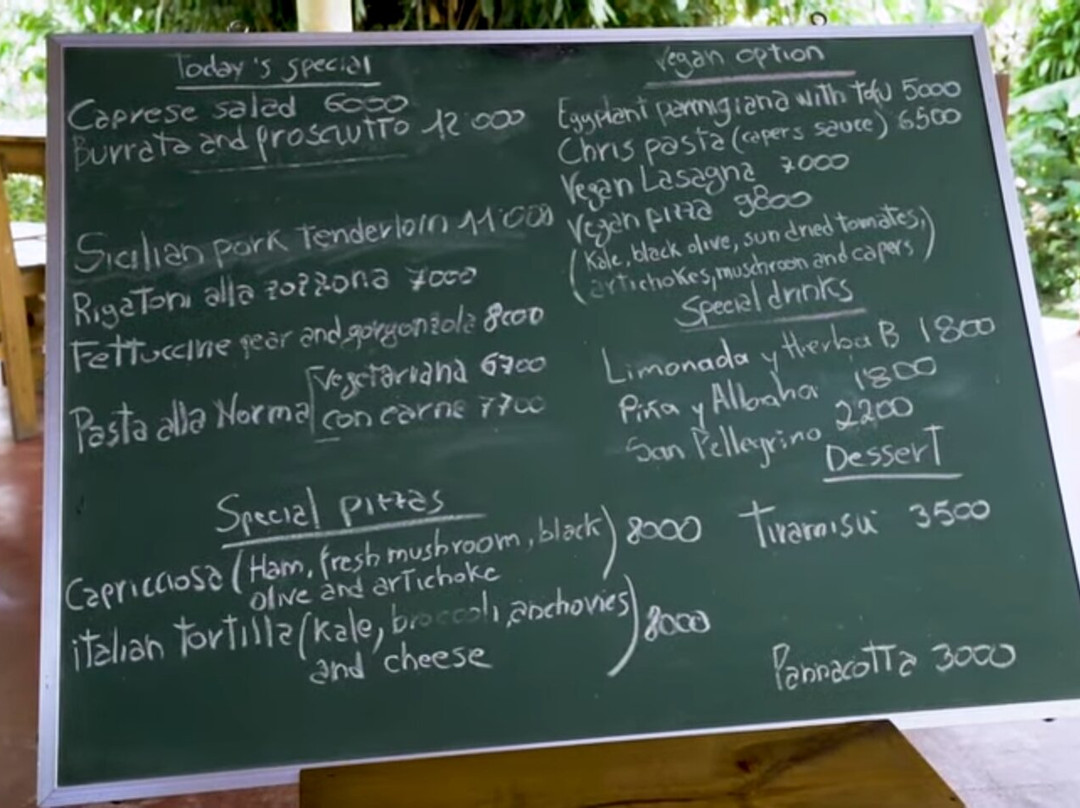 Today's special
Caprese salad 6000
Burrata and prosciutto 12000
Sicilian pork tenderloin 11000
Rigatoni alla zozzona 7000
Fettuccine pear and gorgonzola 8000
Vegetariana 6700
Pasta alla Norma
con carne 7700
Special pizzas
Capricciosa (Ham, fresh mushroom, black) 8000
olive and artichoke
italian tortilla (kale, broccoli, anchovies) 8000
and cheese
Vegan option
Eggplant parmigiana with tofu 5000
Chris pasta (capers sauce) 6500
Vegan Lasagna 7000
Vegan pizza 9800
(Kale, black olive, sun dried tomates,)
(artichokes, muschroon and capers)
Special drinks
Limonada y Hierba B 1800
Piña y Albaha 1800
San Pellegrino 2200
Dessert
Tiramisù 3500
Pannacotta 3000